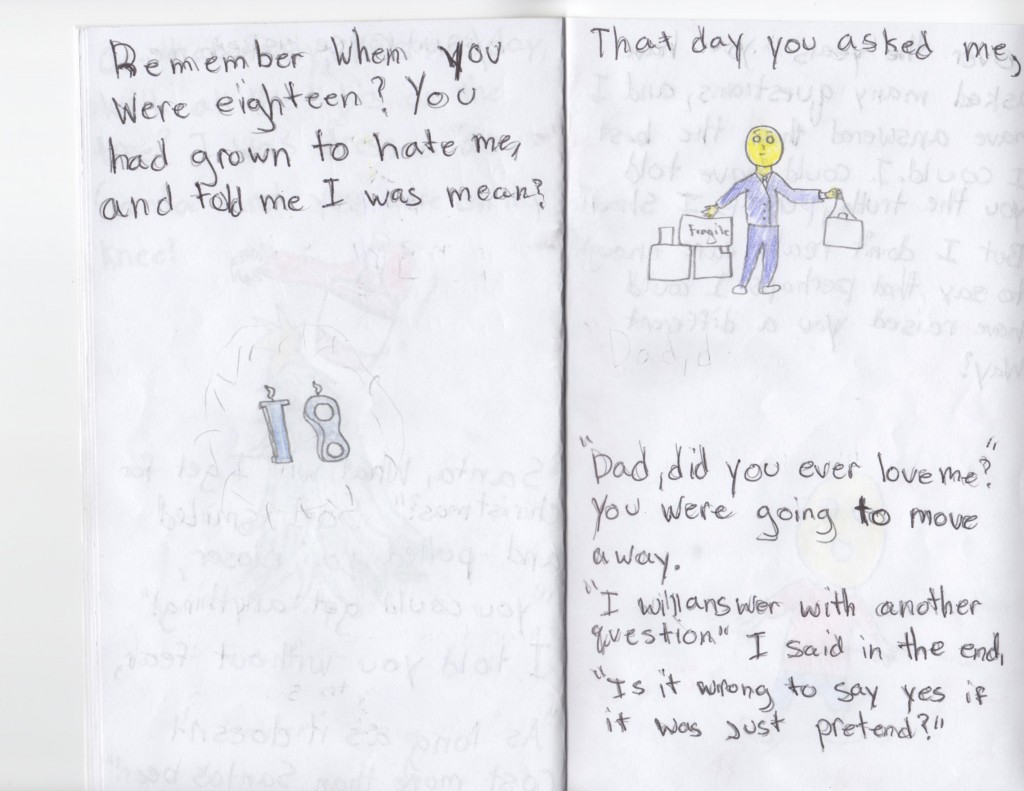 Remember when you
were eighteen? You
had grown to hate me,
and told me I was mean?
18
That day you asked me,
Fragile
"Dad, did you ever love me?"
You were going to move
away.
"I will answer with another
question" I said in the end,
"Is it wrong to say yes if
it was Just pretend?"